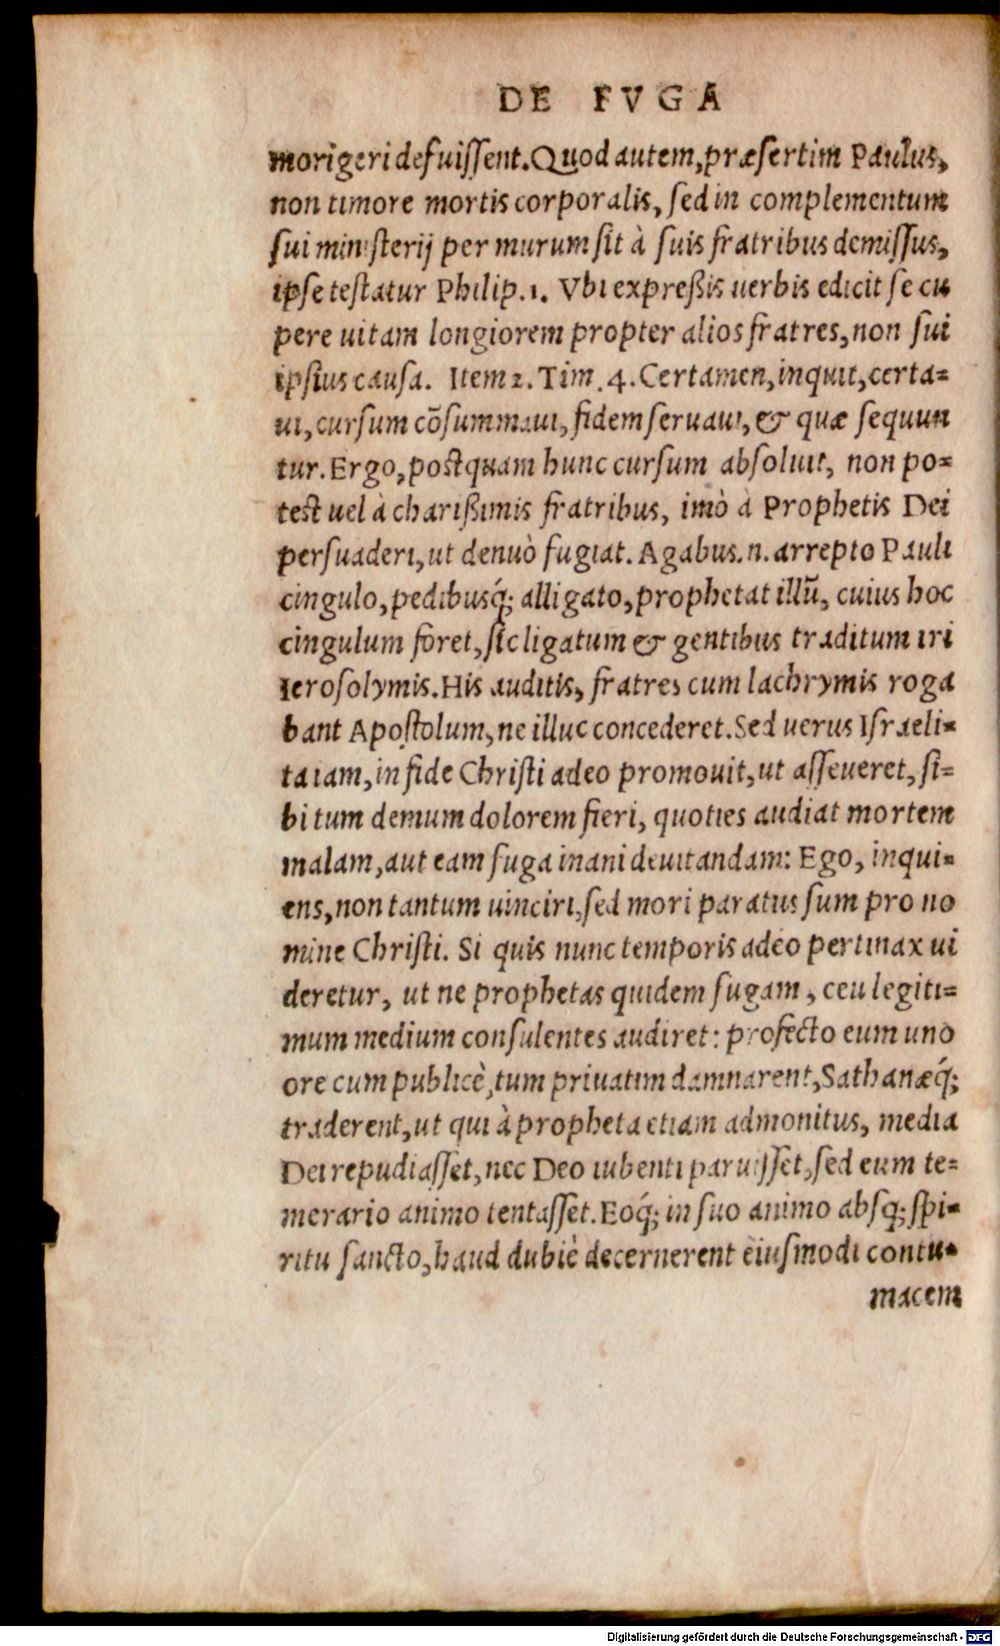 DE FVGA
morigeri defuissent. Quod autem, præsertim Paulus,
non timore mortis corporalis, sed in complementum
sui ministerij per murum sit à suis fratribus demissus,
ipse testatur Philip. 1. Vbi expreßis uerbis edicit se cu
pere uitam longiorem propter alios fratres, non sui
ipsius causa. Item 2. Tim. 4. Certamen, inquit, certa=
ui, cursum cõsummaui, fidem seruaui, & quæ sequun
tur. Ergo, postquam hunc cursum absoluit, non po=
test uel à charißimis fratribus, imò à Prophetis Dei
persuaderi, ut denuò fugiat. Agabus .n. arrepto Pauli
cingulo, pedibusq́; alligato, prophetat illũ, cuius hoc
cingulum foret, sic ligatum & gentibus traditum iri
Ierosolymis. His auditis, fratres cum lachrymis roga
bant Apostolum, ne illuc concederet. Sed uerus Israeli=
ta iam, in fide Christi adeo promouit, ut asseueret, si=
bi tum demum dolorem fieri, quoties audiat mortem
malam, aut eam fuga inani deuitandam: Ego, inqui=
ens, non tantum uinciri, sed mori paratus sum pro no
mine Christi. Si quis nunc temporis adeo pertinax ui
deretur, ut ne prophetas quidem fugam, ceu legiti=
mum medium consulentes audiret: profecto eum uno
ore cum publicè, tum priuatim damnarent, Sathanæq́;
traderent, ut qui à propheta etiam admonitus, media
Dei repudiasset, nec Deo iubenti paruisset, sed eum te=
merario animo tentasset. Eoq́; in suo animo absq; spi=
ritu sancto, haud dubiè decernerent eiusmodi contu=
macem
Digitalisierung gefördert durch die Deutsche Forschungsgemeinschaft - DFG